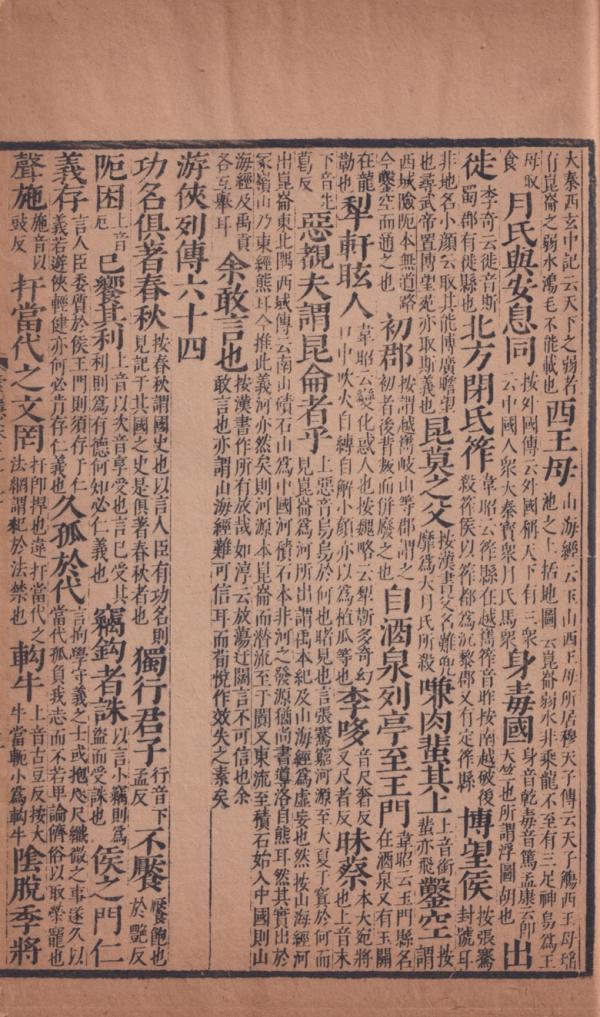 大秦西玄中記云天下之弱者有崑崙之弱水鴻毛不能載也西王母山海經云玉山西王母所居穆天子傳云天子觴西王母瑤池之上括地圖云崑崙弱水非乘龍不至有三足神鳥爲王
母取食月氏與安息同按外國傳云外國稱天下有三衆云中國人衆大秦寶衆月氏馬衆身毒國身音乾毒音篤孟康云即天竺也所謂浮圖胡也出
徙李奇云徙音斯蜀郡有徙縣也北方閉氏筰韋昭云筰縣在越嶲筰音昨按南越破後殺筰侯以筰都爲沉黎郡又有定筰縣博望侯按張騫封號耳
非地名小顏云取其能博廣瞻望也尋武帝置博望苑亦取斯義也昆莫之父按漢書父名難兜靡爲大月氏所殺嗛肉蜚其上上音銜蜚亦飛鑿空按謂
西域險阨本無道路今鑿空而通之也初郡按謂越嶲岐山等郡謂之初者後背叛而併廢之也自酒泉列亭至玉門韋昭云玉門縣名在酒泉又有玉關
在龍勒也犂軒眩人韋昭云變化惑人也按魏略云犂靳多奇幻口中吹火自縛自解小顏亦以爲植瓜等也李哆音尺奢反又尺者反昧蔡本大宛將也上音末
下音先葛反惡覩夫謂昆侖者乎上惡音烏烏於何也睹見也言張騫窮河源至大夏于寘於何而見崑崙爲河所出謂禹本紀及山海經爲虛妄也然按山海經河
出崑崙東北隅西域傳云南山積石山爲中國河積石本非河之發源猶尚書導洛自熊耳然其實出於冢嶺山乃東經熊耳今推此義河亦然矣則河源本崑崙而潛流至于闐又東流至積石始入中國則山
海經及禹貢各互舉耳余敢言也按漢書作所有放哉如淳云放蕩迂闊言不可信也余敢言也亦謂山海經難可信耳而荀悅作效失之素矣
游俠列傳六十四
功名俱著春秋按春秋謂國史也以言人臣有功名則見記于其國之史是俱著春秋者也獨行君子行音下孟反不饜饜飽也於艷反
阨困上音厄已饗其利上音以次音享受也言已受其利則爲有德何知必仁義也竊鈎者誅以言小竊則爲盜而受誅也侯之門仁
義存言人臣委質於侯王門則須存于仁義若遊俠輕健亦何必肯存仁義也久孤於代言拘學守義之士或抱咫尺纖微之事遂久以當代孤負我志而不若卑論儕俗以取榮寵也
聲施施音以豉反扞當代之文罔扞即捍也違扞當代之法網謂犯於法禁也軥牛上音古豆反按大牛當軛小爲軥牛陰脫季將